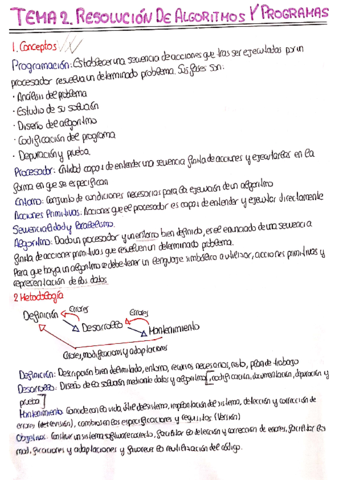 TEMA 2. RESOLUCIÓN DE ALGORITMOS Y PROGRAMAS
1. Conceptos
Programación: Establecer una secuencia de acciones que tras ser ejecutadas por un
procesador resuelva un determinado problema. Sus fases son:
· Análisis del problema
· Estudio de su solución
· Diseño del algoritmo
· Codificación del programa
· Depuración y prueba.
Procesador: Entidad capaz de entender una secuencia finita de acciones y ejecutarlas en la
forma en que se especifican
Entorno: Conjunto de condiciones necesarias para la ejecución de un algoritmo
Acciones Primitivas: Acciones que el procesador es capaz de entender y ejecutar directamente
Secuencialidad y Paralelismo.
Algoritmo: Dado un procesador y un entorno bien definido, es el enunciado de una secuencia
finita de acciones primitivas que resuelven un determinado problema.
Para que haya un algoritmo se debe tener un lenguaje simbólico a utilizar, acciones primitivas y
representación de los datos
2 Metodología
Definición Errores
Desarrollo Errores
Mantenimiento
Errores, modificaciones y adaptaciones
Definición: Descripción bien delimitada, entorno, recursos necesarios, plan de trabajo
Desarrollo: Diseño de la solución mediante datos y algoritmo, codificación, documentación, depuración y
prueba
Mantenimiento: vida útil del sistema, implantación del sistema, detección y corrección de
errores, cambios en las especificaciones y requisitos (Versión)
Objetivos: Construir un sistema software correcto, facilitar la detección y corrección de errores, facilitar las
modificaciones y adaptaciones y favorecer la reutilización del código.